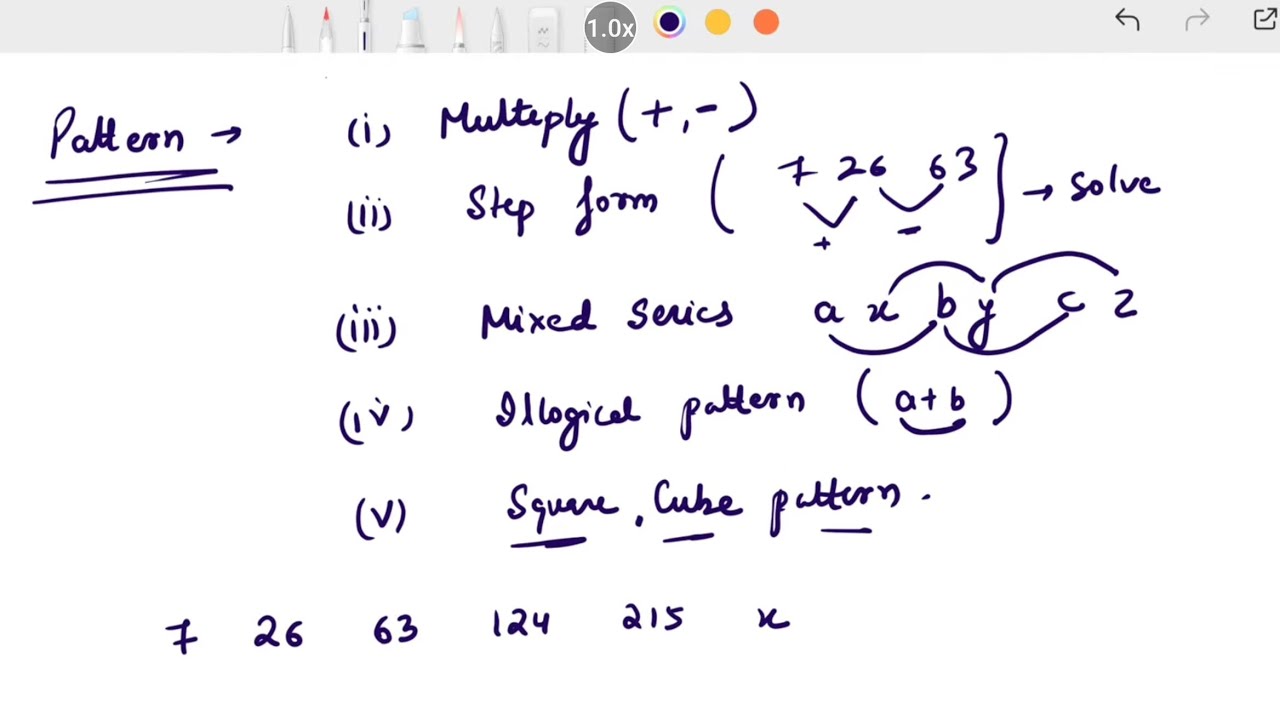 1.0x
Pattern → (i) Multiply (+,-)
(ii) Step form ( 7 26 63 ] → solve
+ -
(iii) Mixed series a x b y c z
(iv) Illogical pattern (a+b)
(v) Square, Cube pattern.
7 26 63 124 215 x